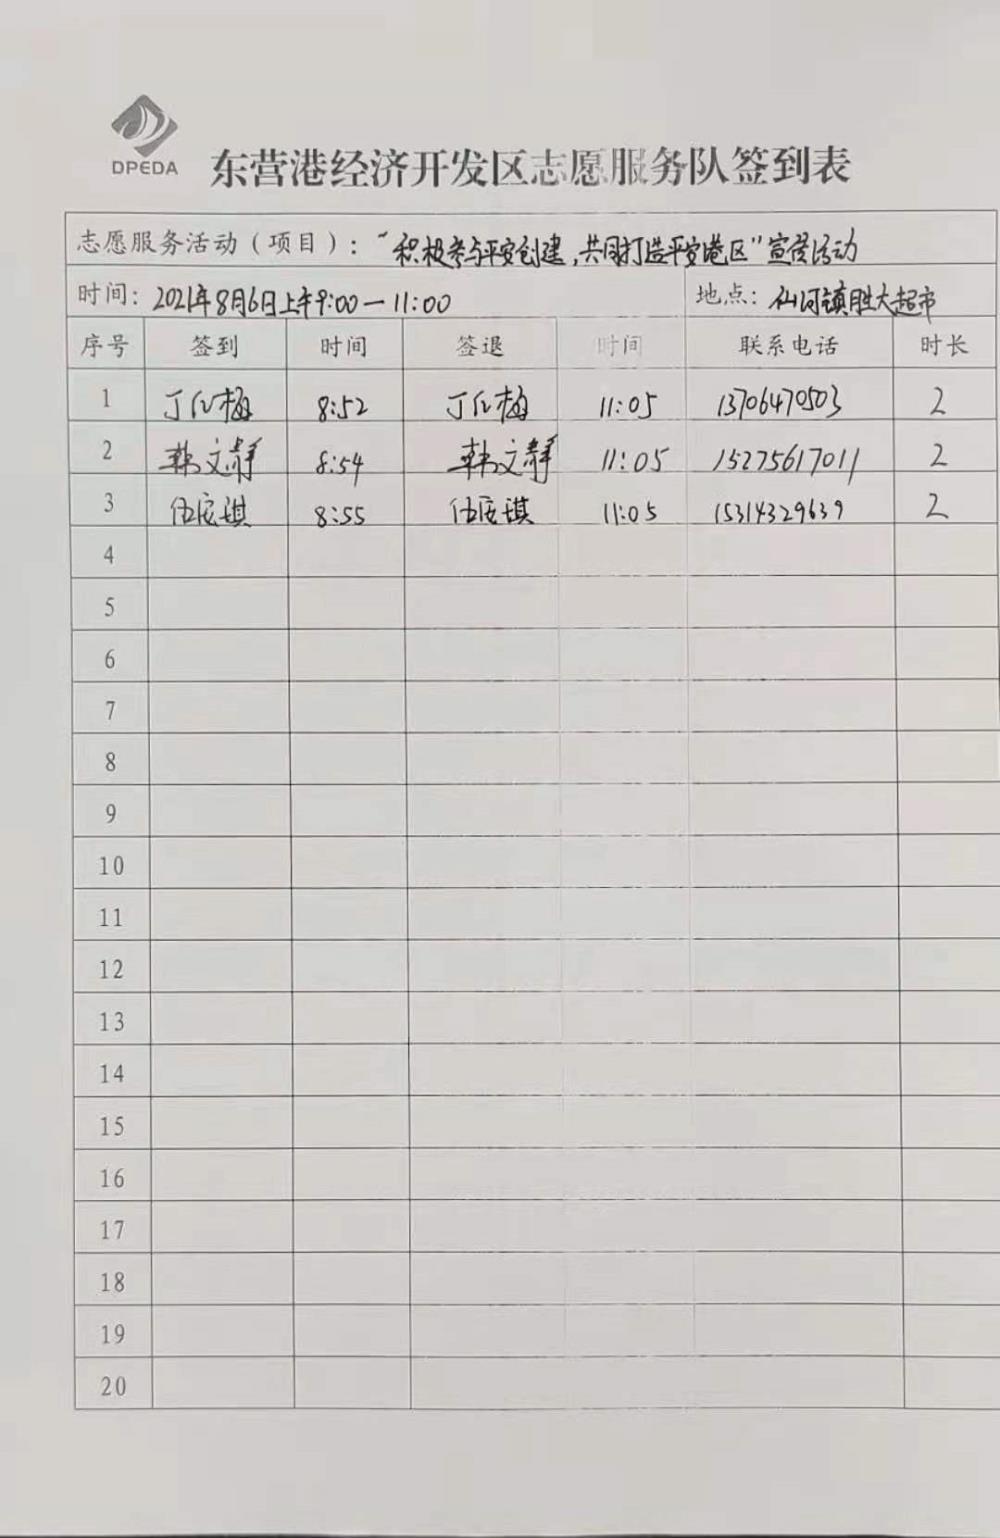 DPEDA
东营港经济开发区志愿服务队签到表
志愿服务活动（项目）：“积极参与平安创建，共同打造平安港区”宣传活动
时间：2021年8月6日上午9:00—11:00 地点：仙河镇胜大超市
序号 签到 时间 签退 时间 联系电话 时长
1 丁化梅 8:52 丁化梅 11:05 13706470503 2
2 韩文静 8:54 韩文静 11:05 15275617011 2
3 伍宸琪 8:55 伍宸琪 11:05 15314329639 2
4
5
6
7
8
9
10
11
12
13
14
15
16
17
18
19
20